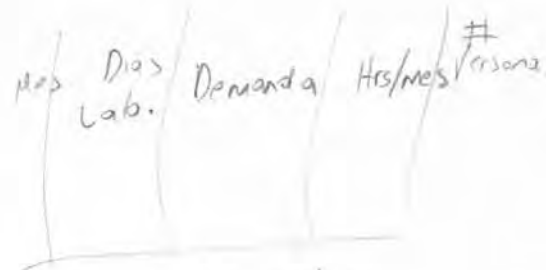 Mes Dias Lab. Demanda Hrs/mes # Persona